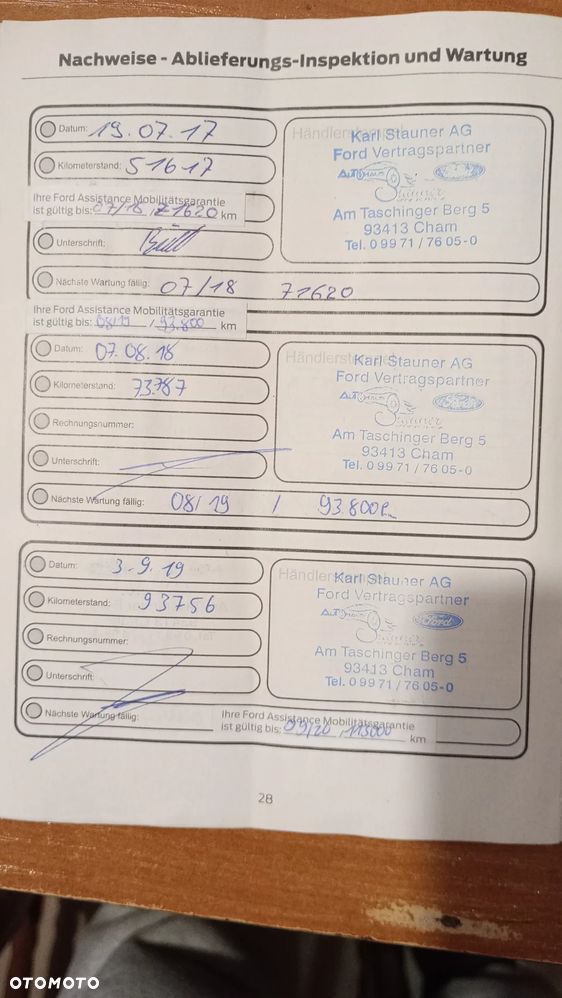 Nachweise - Ablieferungs-Inspektion und Wartung
Datum: 19.07.17
Kilometerstand: 51617
Ihre Ford Assistance Mobilitätsgarantie
ist gültig bis: 07/18, 71620 km
Unterschrift:
Nächste Wartung fällig: 07/18 71620
Karl Stauner AG
Ford Vertragspartner
AUTOHAUS Stauner Ford
Am Taschinger Berg 5
93413 Cham
Tel. 0 99 71 / 76 05-0
Ihre Ford Assistance Mobilitätsgarantie
ist gültig bis: 08/19 / 93.800 km
Datum: 07.08.18
Kilometerstand: 73.787
Rechnungsnummer:
Unterschrift:
Nächste Wartung fällig: 08/19 / 93.800
Karl Stauner AG
Ford Vertragspartner
Stauner Ford
Am Taschinger Berg 5
93413 Cham
Tel. 0 99 71 / 76 05-0
Datum: 3.9.19
Kilometerstand: 93756
Rechnungsnummer:
Unterschrift:
Nächste Wartung fällig:
Ihre Ford Assistance Mobilitätsgarantie
ist gültig bis: 09/20, 113000 km
Karl Stauner AG
Ford Vertragspartner
Stauner Ford
Am Taschinger Berg 5
93413 Cham
Tel. 0 99 71 / 76 05-0
28
OTOMOTO